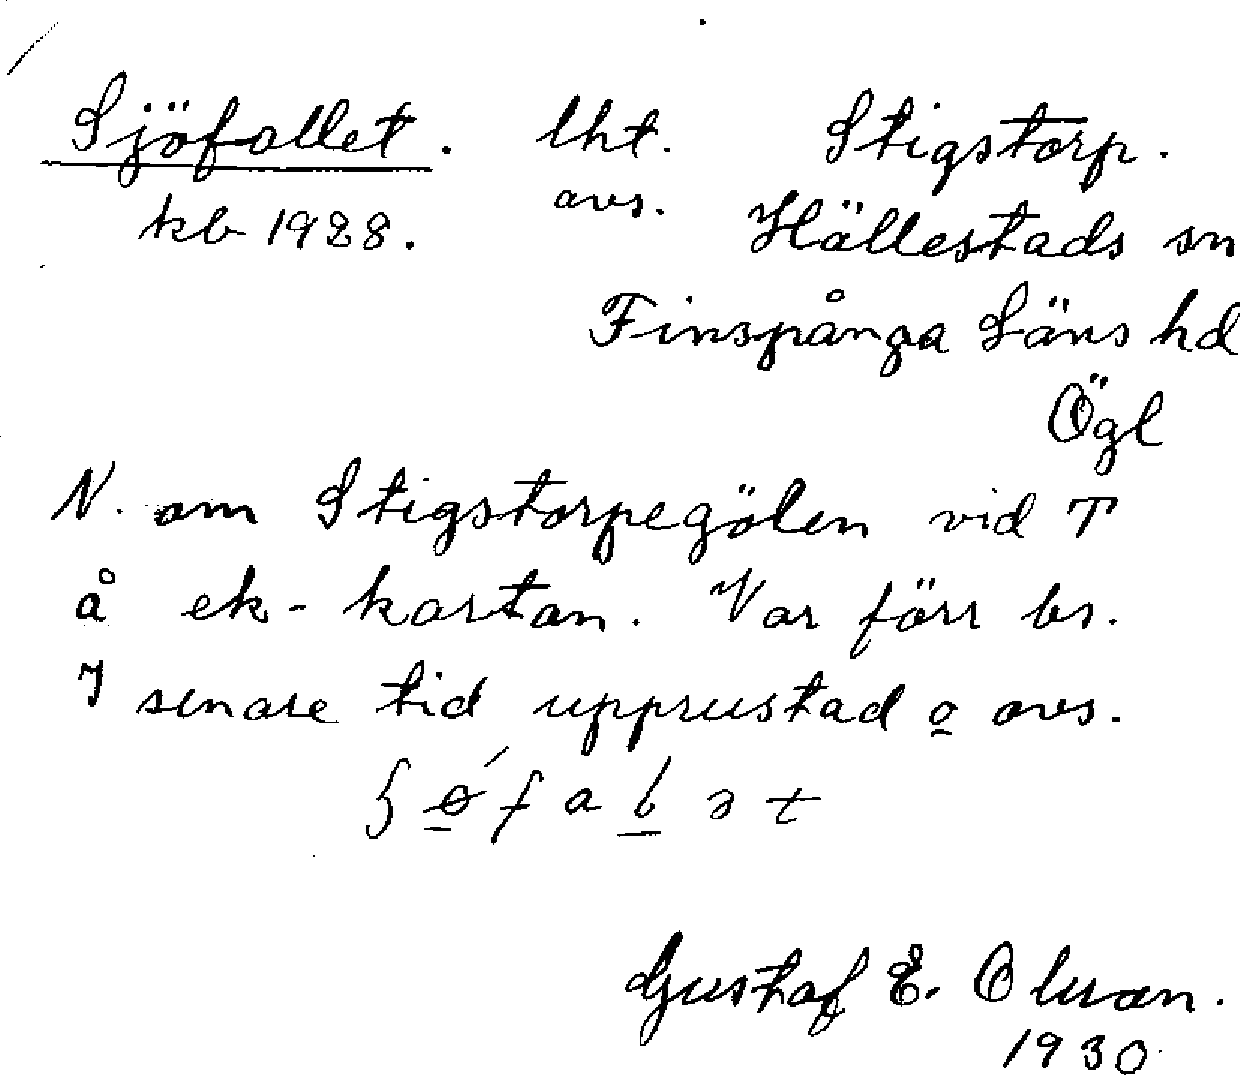 Sjöfallet. lht. Stigstorp.
kb 1928. avs. Hällestads sn
Finspånga Läns hd
Ögl
N. om Stigstorpegölen vid T
å ek-kartan. Var förr bs.
I senare tid upprustad o avs.
Gustaf E. Olsson.
1930